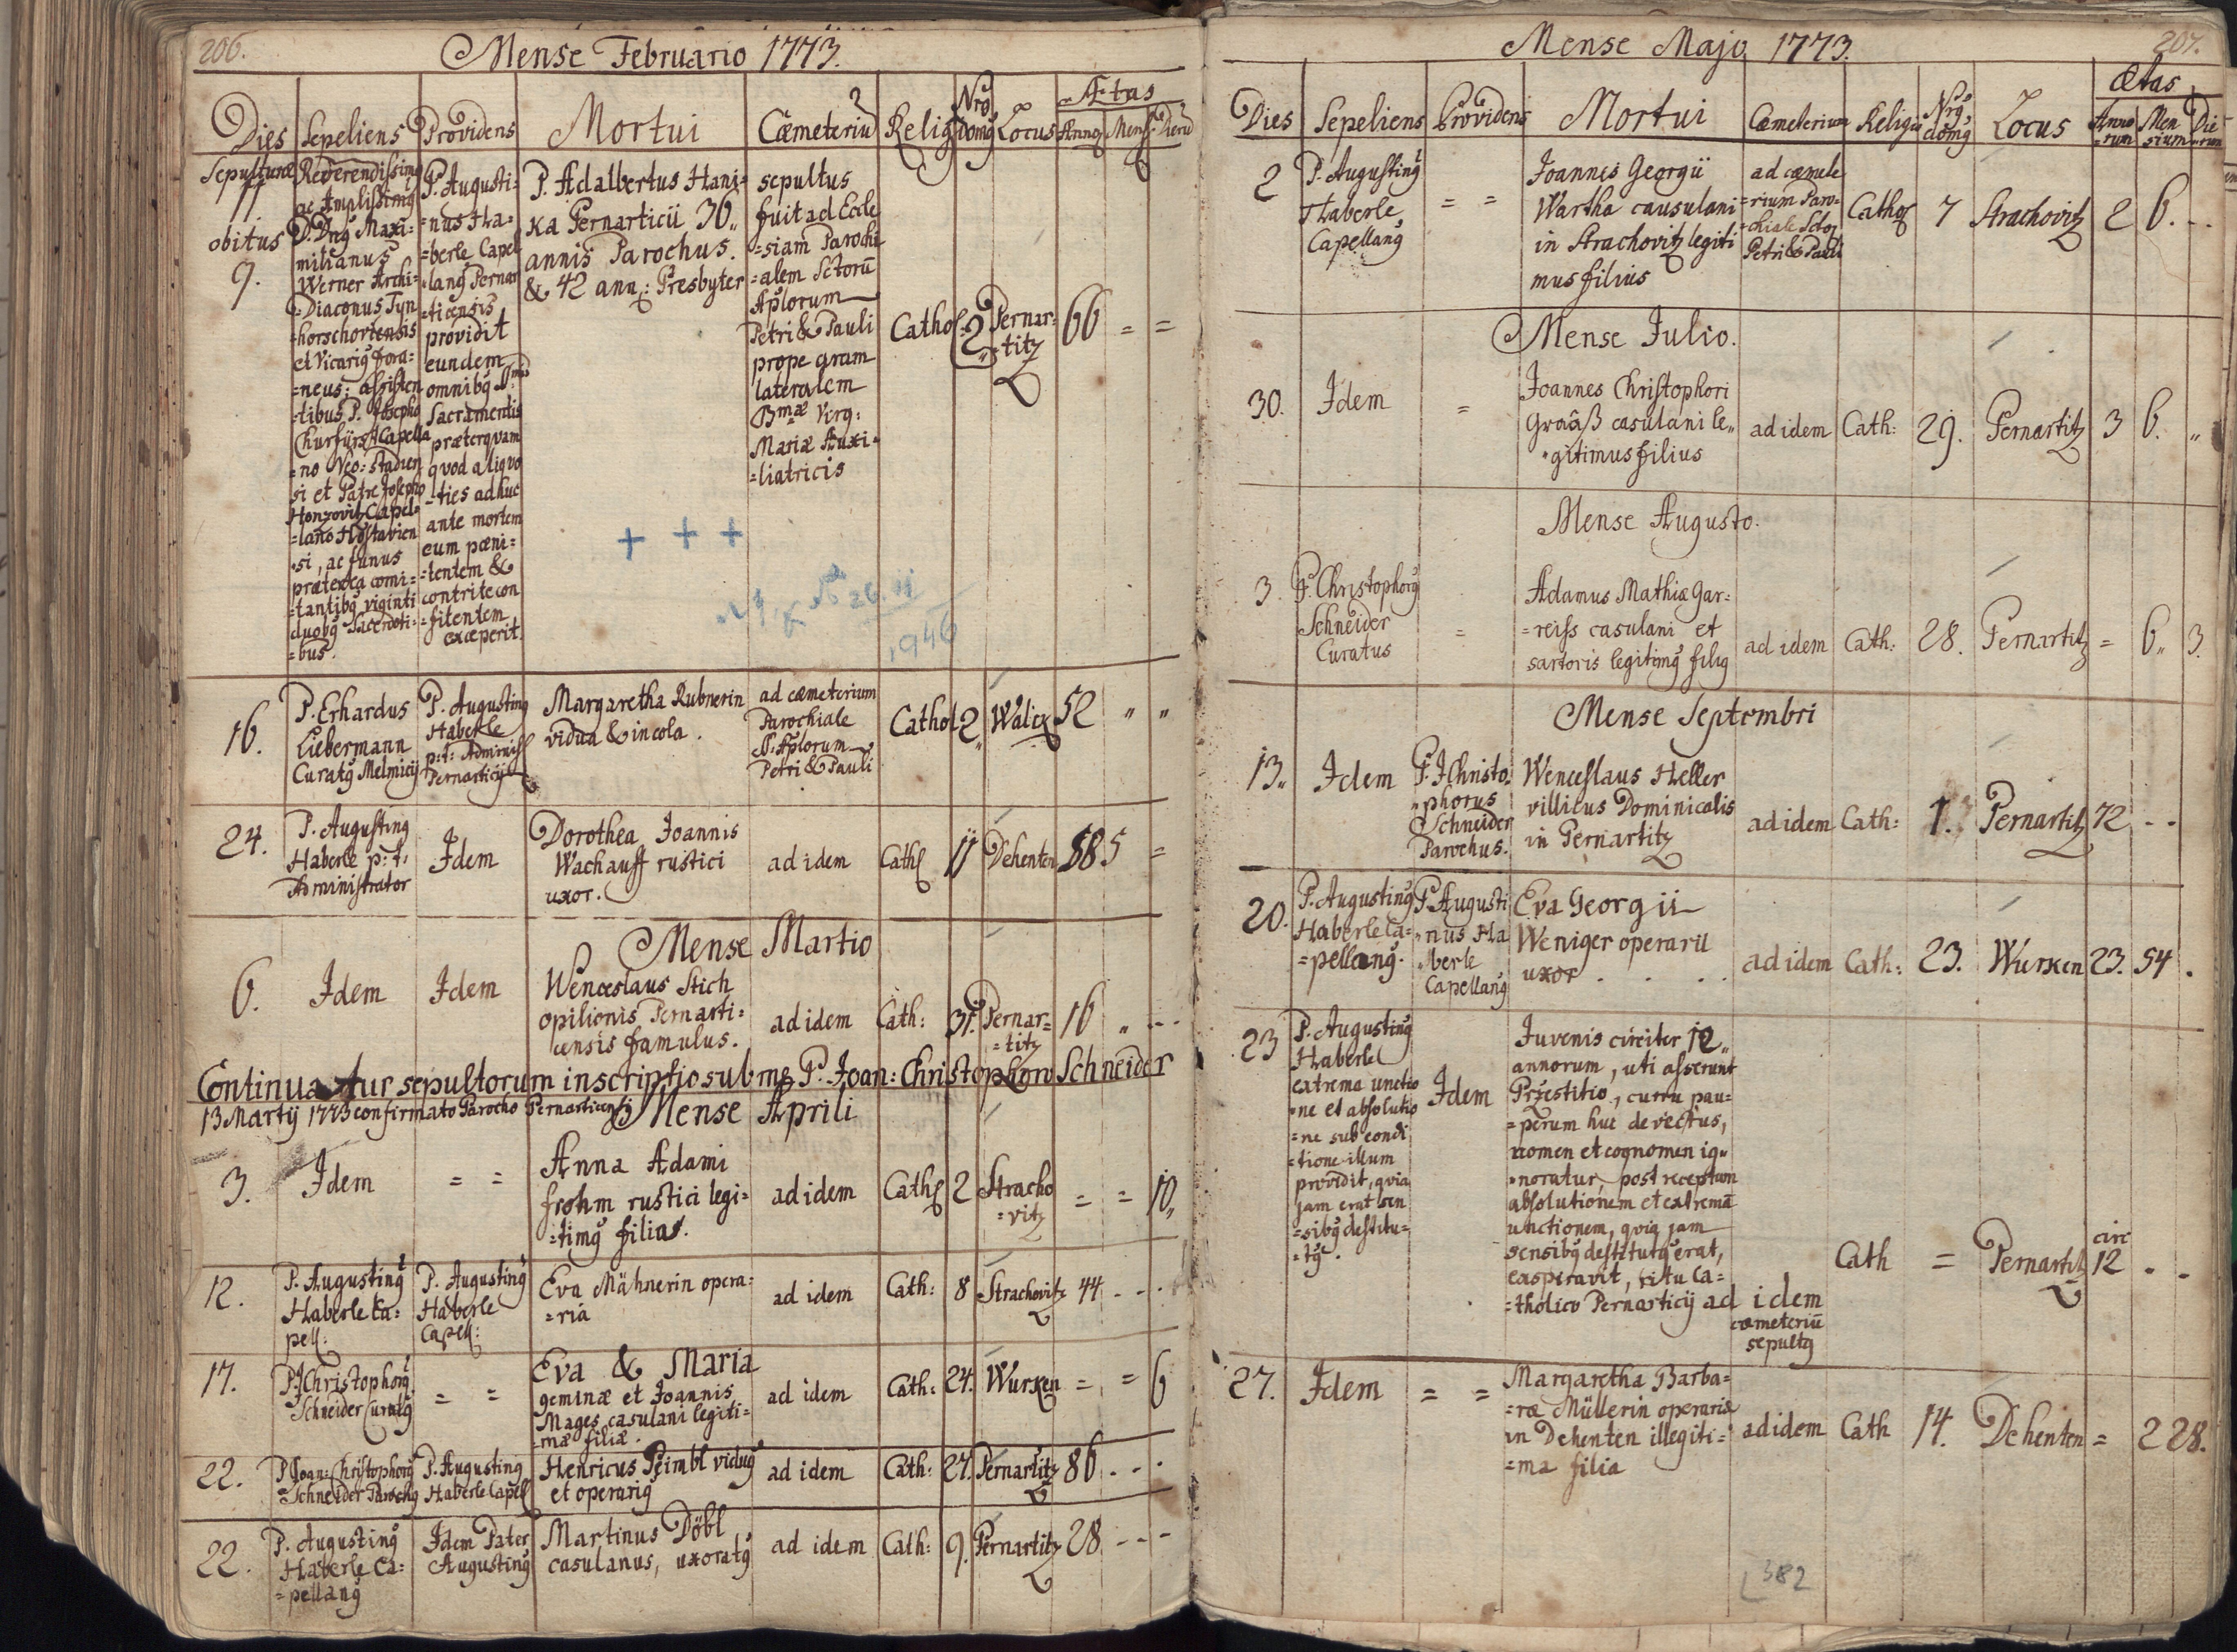 206.
Mense Februario 1773.
Dies Sepeliens Providens Mortui Cæmeteriū Relig Nrg domg Locus Ætas
Annoʒ Mens: Dierū
Sepulturæ
11
obitus
9.
Reverendissimg
ac Amplissimg
D. Dng Maxi=
milianus
Werner Archi=
=Diaconus Tyn
=horschovtensis
et Vicarig fora=
=neus: assisten
=tibus P. Josepho
Churfürst Capella
=no Neo=stadien
si et Patre Josepho
Honzovitz Capel=
=lano Hostavien
=si, ac funus
prætexea comi=
=tantibg viginti
duobg Sacerdoti=
=bus.
P. Augusti=
=nus Ha=
=berle Capel
=lang Pernar
=ticensis
providit
eundem
omnibg S.mis
Sacramentis
præterquam
quod aliquo
=ties adhuc
ante mortem
eum pœni=
=tentem &
contrite con
=fitentem
exceperit.
P. Adalbertus Hani=
ka Pernarticii 30„
annis Parochus.
& 42 ann: Presbyter
sepultus
fuit ad Eccle
=siam Parochi
=alem Sctorū
Aplorum
Petri & Pauli
prope aram
lateralem
Bmæ Virg:
Mariæ Auxi=
=liatricis
Cathol: 2 Pernar=
=titz 66 = =
+ + +
26. 11
1946
16.
P. Erhardus
Liebermann
Curatg Melmicij
P. Augusting
Haberle
p: t: Administ
Pernarticij
Margaretha Rubnerin
vidua & incola.
ad cæmeterium
Parochiale
S. Aplorum
Petri & Pauli
Cathol 2„ Walix 52 „ „
24.
P. Augusting
Haberle p: t:
Administrator
Idem
Dorothea Joannis
Wachauff rustici
uxor.
ad idem Cath 11 Dehenten 58 5 =
Mense Martio
6. Idem Idem
Wenceslaus Stich
opilionis Pernarti=
censis famulus.
ad idem Cath: 31. Pernar=
=titz 16 „ --
Continuatur sepultorum inscriptio sub me P. Joan: Christophoro Schneider
13 Martij 1773 confirmato Parocho Pernarticensi Mense Aprili
3. Idem = =
Anna Adami
frohm rustici legi=
=timg filia.
ad idem Cath 2 Stracho
=vitz = = 10„
12.
P. Augusting
Haberle Ca=
pell:
P. Augusting
Haberle
Capell:
Eva Mähnerin opera=
=ria
ad idem Cath: 8 Strachovitz 44 - - -
17.
P. J Christophorg
Schneider Curatg
= =
Eva & Maria
geminæ et Joannis
Mages casulani legiti=
=mæ filiæ.
ad idem Cath: 24. Wurken = = 6
22.
P. Joan: Christophorg
Schneider Parochg
P. Augusting
Haberle Capell
Henricus Peimbl vidug
et operarig
ad idem Cath: 27. Pernartitz 86 . - .
22.
P. Augusting
Haberle Ca=
=pellang
Idem Pater
Augusting
Martinus Döbl
casulanus, uxoratg
ad idem Cath: 9. Pernartitz 28 - - -
Mense Majo 1773.
207.
Dies Sepeliens Providens Mortui Cæmeterium Religio Nrg domg Locus Ætas
Anno
=rum Men
sium Die
=rum
2
P. Augusting
Haberle
Capellang
= =
Joannes Georgii
Wartha causulani
in Strachovitz legiti
mus filius
ad cæmete
=rium Paro=
=chiale Sctoʒ
Petri & Pauli
Cathoʒ 7 Strachovitz 2 6. --
Mense Julio.
30. Idem =
Joannes Christophori
Graaß casulani le„
„gitimus filius
ad idem Cath: 29. Pernartitz 3 6. „
Mense Augusto.
3.
P. Christophorg
Schneider
Curatus
=
Adamus Mathiæ Gar=
=reiss casulani et
sartoris legitimg filig
ad idem Cath: 28. Pernartitz = 6„ 3.
Mense Septembri
13„ Idem
P. J Christo
„phorus
Schneider
Parochus.
Wenceslaus Heller
villicus Dominicalis
in Pernartitz
ad idem Cath: 1. Pernartitz 72 - -
20.
P. Augusting
Haberle Ca=
=pellang.
P. Augusti
„nus Ha
„berle
Capellang
Eva Georgii
Weniger operarii
uxor . . . .
ad idem Cath: 23. Wurken 23. 54 .
23
P. Augusting
Haberle
extrema unctio
=ne et absolutio
=ne sub condi
=tione illum
providit, quia
jam erat sen
=sibg destitu=
=tg.
Idem
Juvenis circiter 12„
annorum, uti asserunt
Przestitio, curru pau=
=perum huc devectus,
nomen et cognomen ig„
„noratur, post receptam
absolutionem et extremā
unctionem, quia jam
sensibg destitutg erat,
exspiravit, ritu Ca=
=tholico Pernarticij ad idem
cæmeteriū
sepultg
Cath = Pernartitz circ
12 - -
27. Idem = =
Margaretha Barba=
=ræ Müllerin operariæ
in Dehenten illegiti=
=ma filia
ad idem Cath 14. Dehenten = 2 28.
382